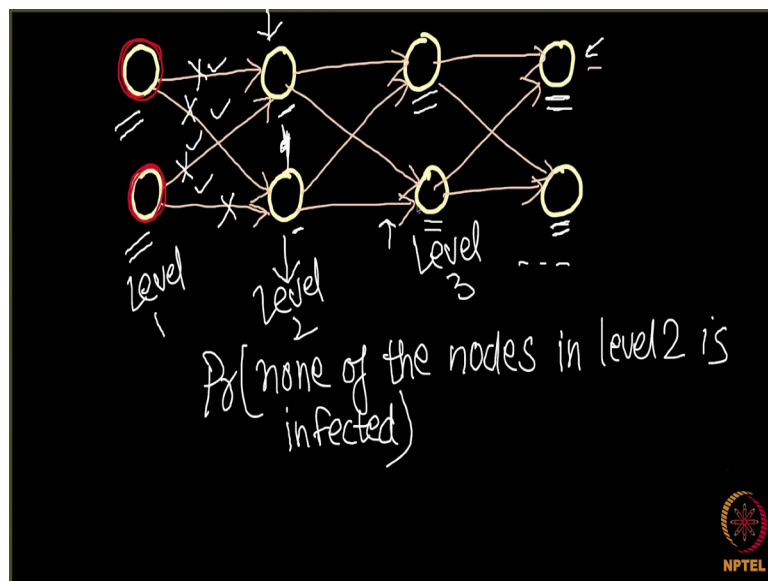 Level
1
Level
2
Level
3
----
Pr(none of the nodes in level 2 is
infected)
NPTEL